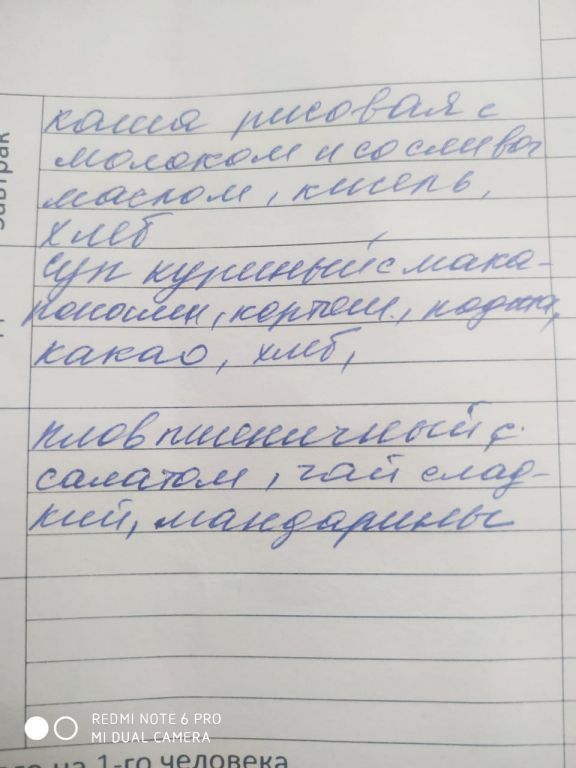 завтрак
каша рисовая с
молоком и со слив
маслом, кисель,
хлеб
суп куриный с мака-
ронами, картош., поджа,
какао, хлеб,
плов пшеничный с
салатом, чай слад-
кий, мандарины
REDMI NOTE 6 PRO
MI DUAL CAMERA
на 1-го человека